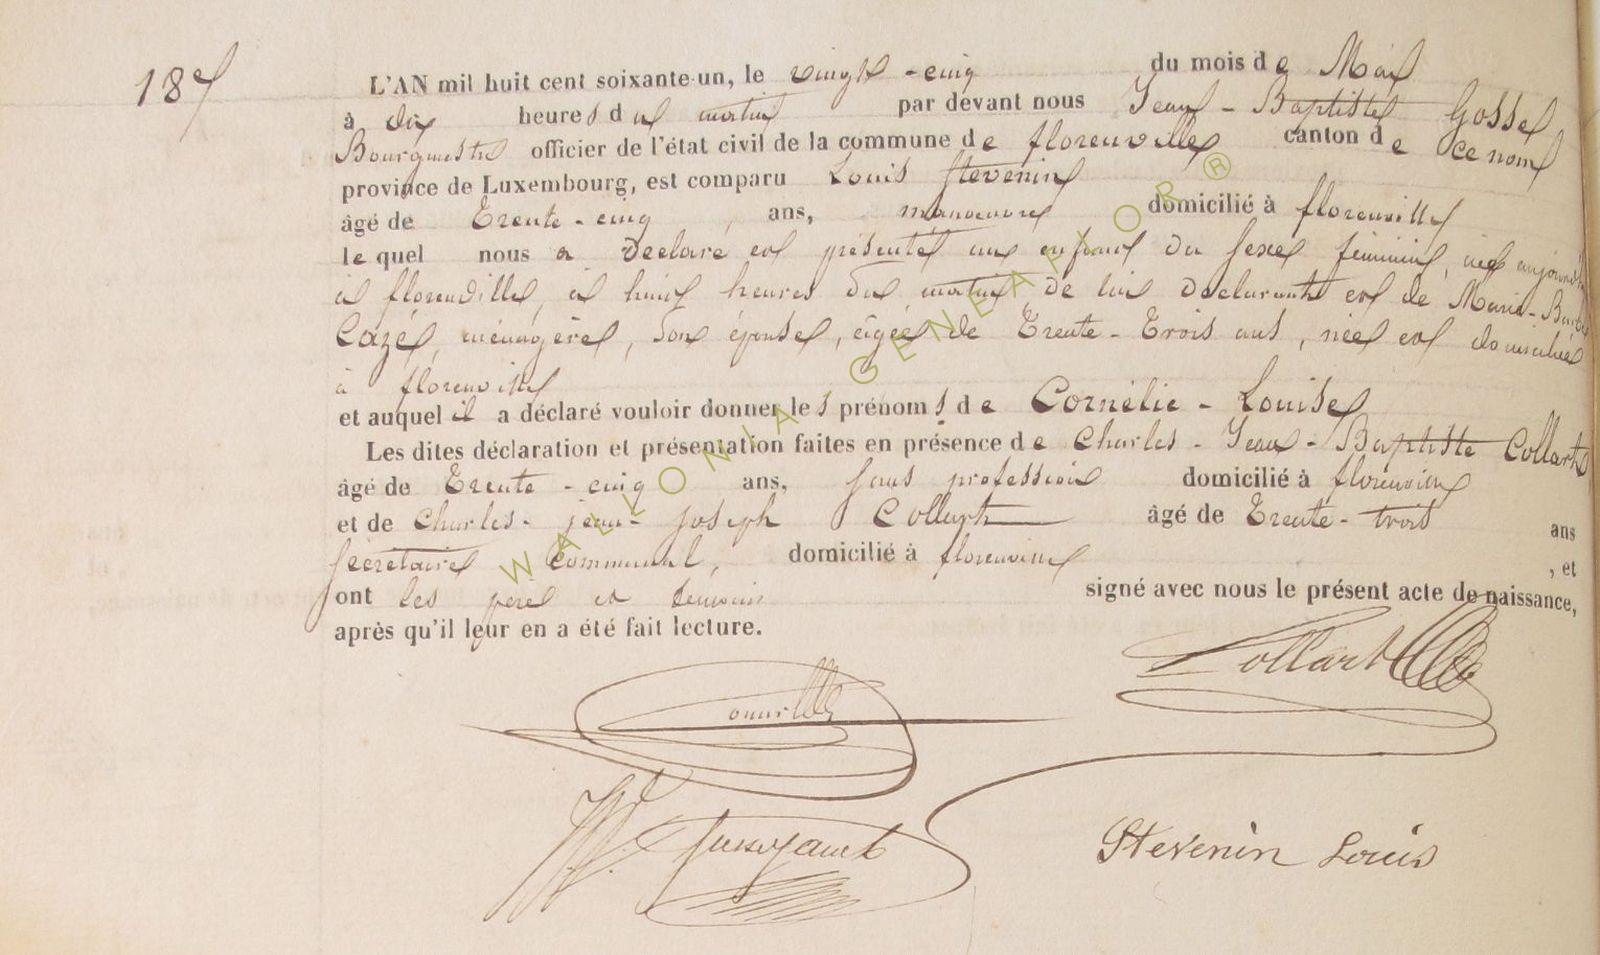 187
L'AN mil huit cent soixante-un, le vingt-cinq du mois de Mai
à dix heures du matin par devant nous Jean-Baptiste Gosse
Bourgmestre officier de l'état civil de la commune de florenville canton de ce nom
province de Luxembourg, est comparu Louis Stevenin
âgé de Trente-cinq ans, manoeuvre domicilié à florenville
lequel nous a declaré et présenté un enfant du sexe féminin, née aujourd'hui
à florenville, à huit heures du matin, de lui declarant et de Marie-Barbe
Cazé, ménagère, son épouse, agée de Trente-Trois ans, née et domiciliée
à florenville
et auquel il a déclaré vouloir donner les prénoms de Cornélie-Louise
Les dites déclaration et présentation faites en présence de Charles-Jean-Baptiste Collart
âgé de Trente-cinq ans, sans profession domicilié à florenville
et de Charles-jean-joseph Collart âgé de Trente-trois ans
secrétaire Communal, domicilié à florenville, et
ont les père et temoins signé avec nous le présent acte de naissance,
après qu'il leur en a été fait lecture.
Collart
Stevenin Louis
WALLONIA GENEALOR ®